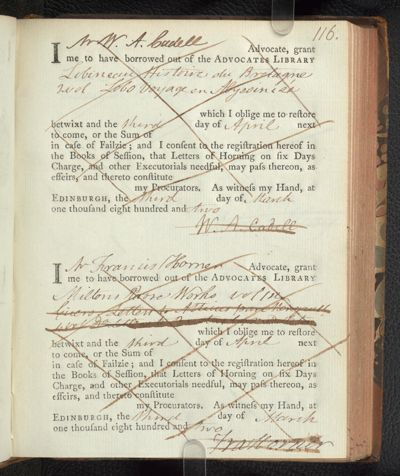 116.
I Mr W. A. Cadell Advocate, grant
me to have borrowed out of the ADVOCATES LIBRARY
Lobineau Histoire de Bretagne
Lobo Voyage en Abyssinie
which I oblige me to restore
betwixt and the third day of April next
to come, or the Sum of
in case of Failzie; and I consent to the registration hereof in
the Books of Session, that Letters of Horning on six Days
Charge, and other Executorials needful, may pass thereon, as
effeirs, and thereto constitute
my Procurators. As witness my Hand, at
EDINBURGH, the third day of March
one thousand eight hundred and two
W. A. Cadell
I Mr Francis Horner Advocate, grant
me to have borrowed out of the ADVOCATES LIBRARY
Miltons Works
Ciceros Letters to Atticus
which I oblige me to restore
betwixt and the third day of April next
to come, or the Sum of
in case of Failzie; and I consent to the registration hereof in
the Books of Session, that Letters of Horning on six Days
Charge, and other Executorials needful, may pass thereon, as
effeirs, and thereto constitute
my Procurators. As witness my Hand, at
EDINBURGH, the third day of March
one thousand eight hundred and two
Fra Horner